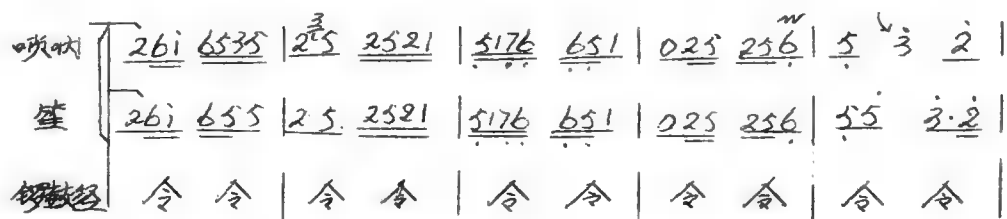 唢呐 26i 6535 | 2 5 2521 | 5176 651 | 025 256 | 5 3̇ 2̇ |
笙 26i 655 | 2 5. 2521 | 5176 651 | 025 256 | 55̇ 3̇·2̇ |
锣鼓经 令 令 | 令 令 | 令 令 | 令 令 | 令 令 |